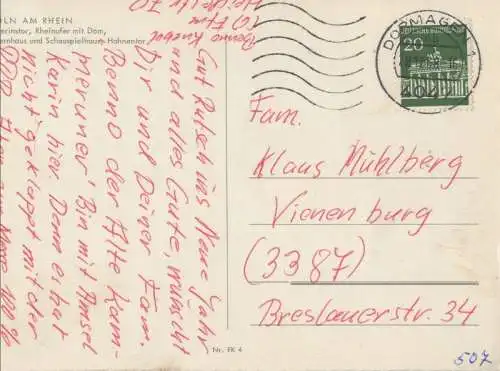 KÖLN AM RHEIN
Severinstor, Rheinufer mit Dom,
Opernhaus und Schauspielhaus, Hahnentor
Gut Rutsch ins Neue Jahr
und alles Gute, wünscht
Dir und Deiner Fam.
Benno der Alte Kam-
meruner Bin mit Amsel
Karin hier. Denn er hat
Nicht geklappt mit der
Benno
DORMAGEN 1
4047
DEUTSCHE BUNDESPOST
20
Fam.
Klaus Mühlberg
Vienenburg
(3387)
Breslauerstr. 34
Nr. FK 4
507